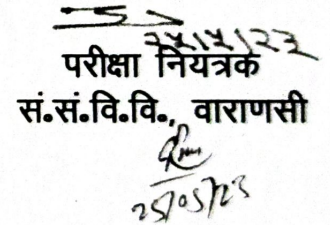 २५/५/२३
परीक्षा नियत्रक
सं.सं.वि.वि., वाराणसी
25/05/23